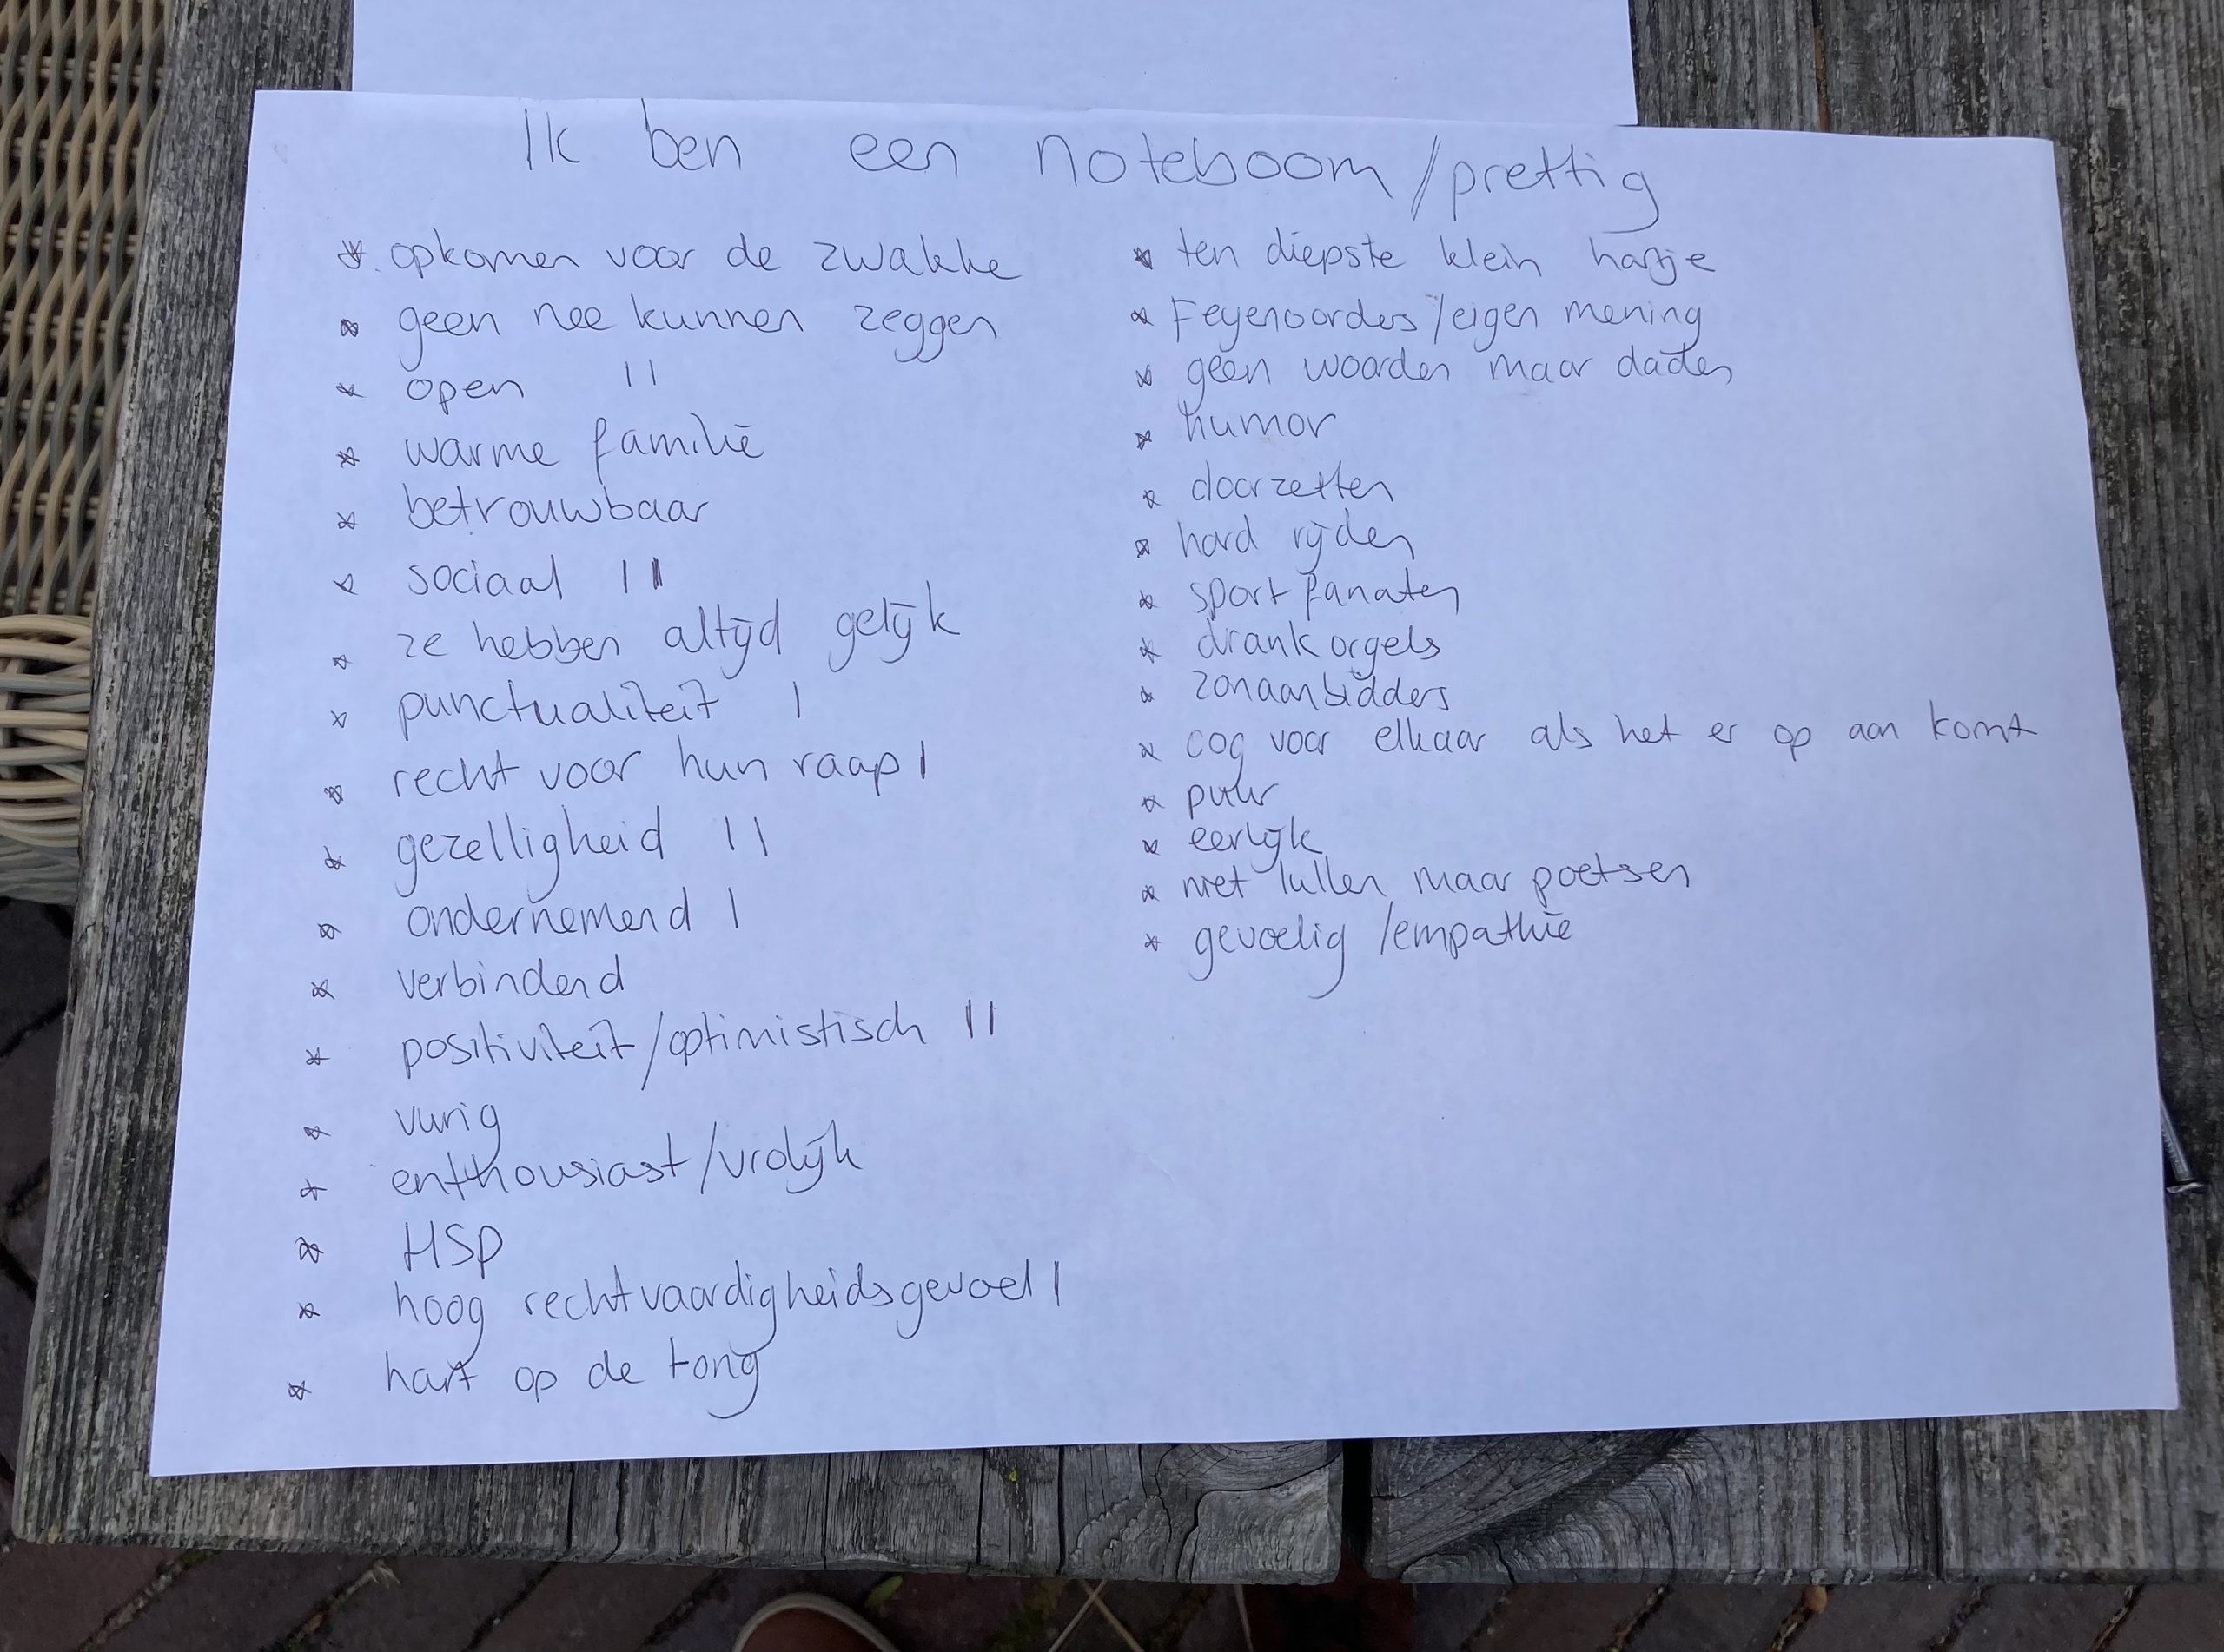 Ik ben een noteboom/prettig
* opkomen voor de zwakke
* geen nee kunnen zeggen
* open II
* warme familie
* betrouwbaar
* sociaal II
* ze hebben altijd gelijk
* punctualiteit I
* recht voor hun raap I
* gezelligheid II
* ondernemend I
* verbindend
* positiviteit/optimistisch II
* vurig
* enthousiast/vrolijk
* HSP
* hoog rechtvaardigheidsgevoel I
* hart op de tong
* ten diepste klein hartje
* Feyenoorders/eigen mening
* geen woorden maar daden
* humor
* doorzetten
* hard rijden
* sport fanaten
* drankorgels
* zonaanbidders
* oog voor elkaar als het er op aan komt
* puur
* eerlijk
* niet lullen maar poetsen
* gevoelig/empathie